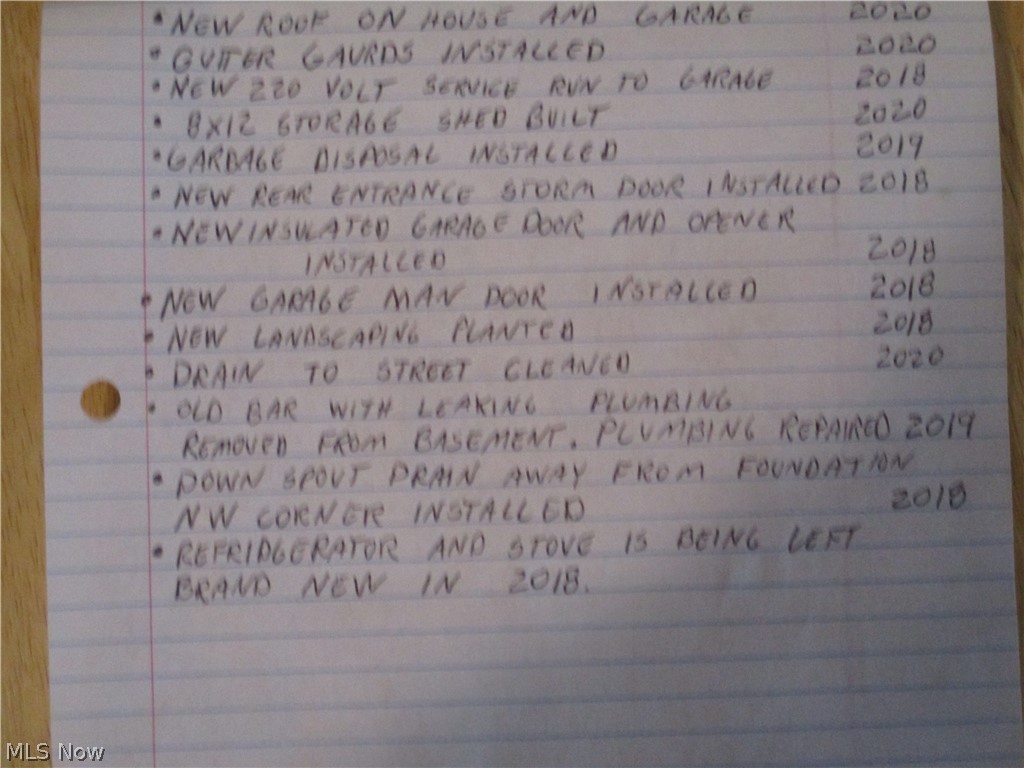 • NEW ROOF ON HOUSE AND GARAGE 2020
• GUTTER GAURDS INSTALLED 2020
• NEW 220 VOLT SERVICE RUN TO GARAGE 2018
• 8X12 STORAGE SHED BUILT 2020
• GARBAGE DISPOSAL INSTALLED 2019
• NEW REAR ENTRANCE STORM DOOR INSTALLED 2018
• NEW INSULATED GARAGE DOOR AND OPENER
INSTALLED 2018
• NEW GARAGE MAN DOOR INSTALLED 2018
• NEW LANDSCAPING PLANTED 2018
• DRAIN TO STREET CLEANED 2020
• OLD BAR WITH LEAKING PLUMBING
REMOVED FROM BASEMENT. PLUMBING REPAIRED 2019
• DOWN SPOUT DRAIN AWAY FROM FOUNDATION
NW CORNER INSTALLED 2018
• REFRIDGERATOR AND STOVE IS BEING LEFT
BRAND NEW IN 2018.
MLS Now